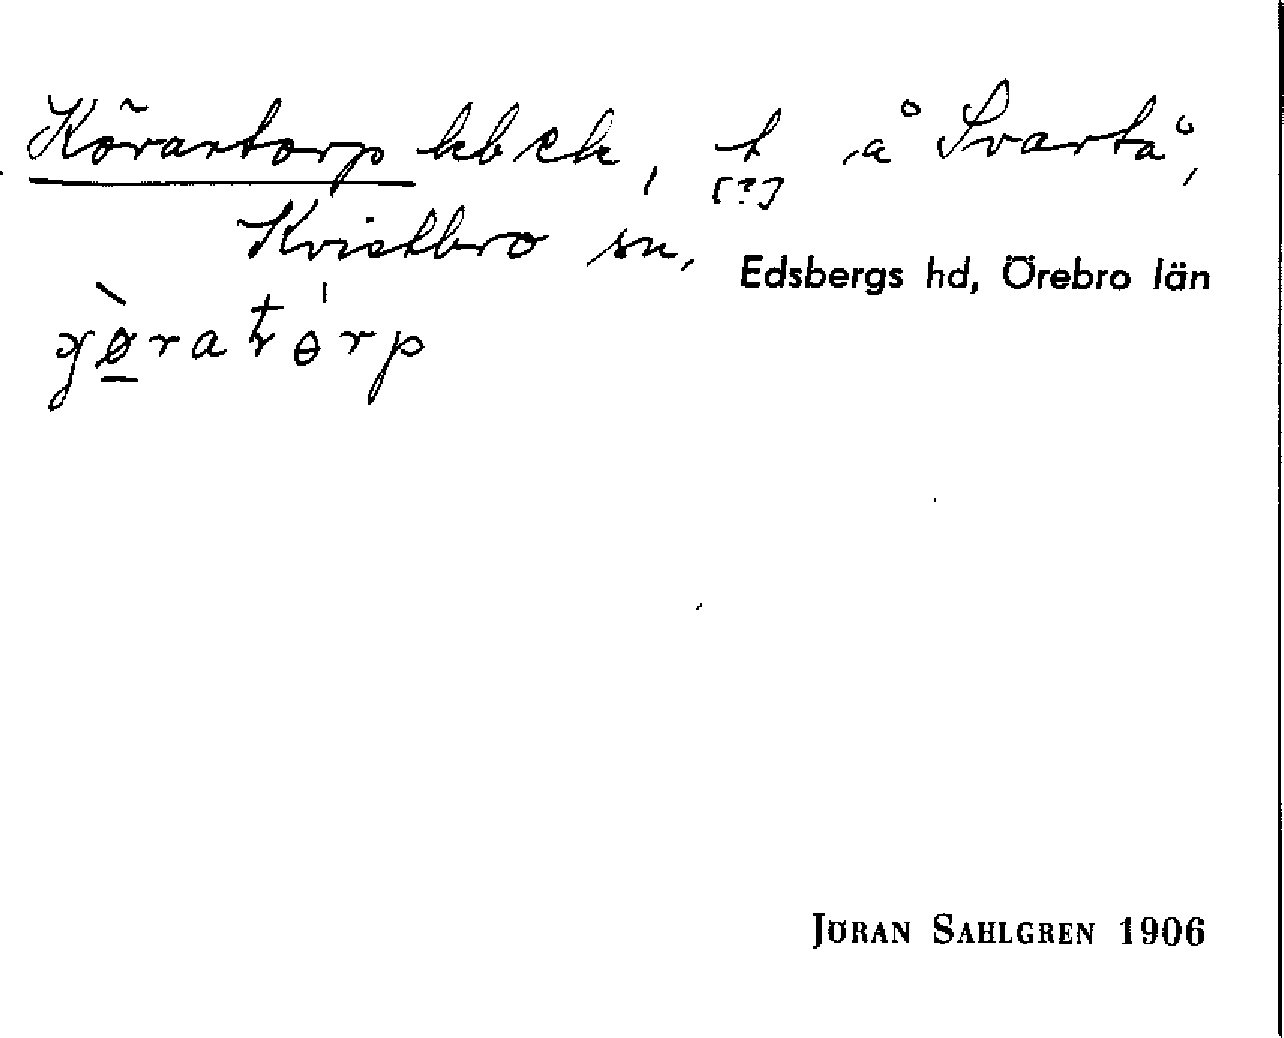 Körartorp kbek, t å Svartå,
[?]
Kvistbro sn, Edsbergs hd, Örebro län
JÖRAN SAHLGREN 1906